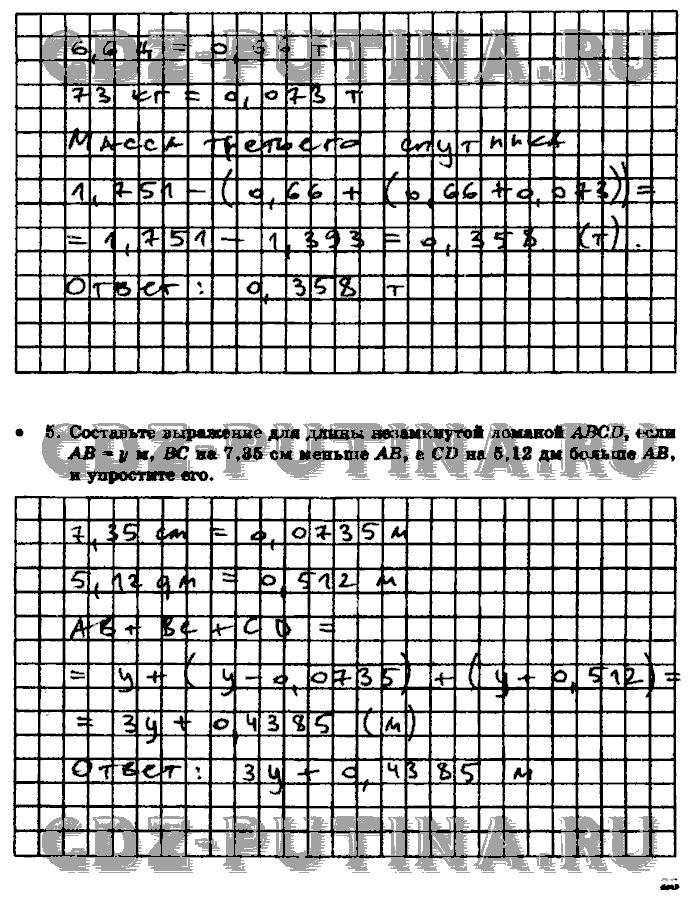 GDZ-PUTINA.RU
6,6 ц = 0,66 т
73 кг = 0,073 т
Масса третьего спутника
1,751 − (0,66 + (0,66 + 0,073)) =
= 1,751 − 1,393 = 0,358 (т).
Ответ: 0,358 т
• 5. Составьте выражение для длины незамкнутой ломаной ABCD, если
AB = y м, BC на 7,35 см меньше AB, а CD на 5,12 дм больше AB,
и упростите его.
GDZ-PUTINA.RU
7,35 см = 0,0735 м
5,12 дм = 0,512 м
AB + BC + CD =
= y + (y − 0,0735) + (y + 0,512) =
= 3y + 0,4385 (м)
Ответ: 3y + 0,4385 м
GDZ-PUTINA.RU